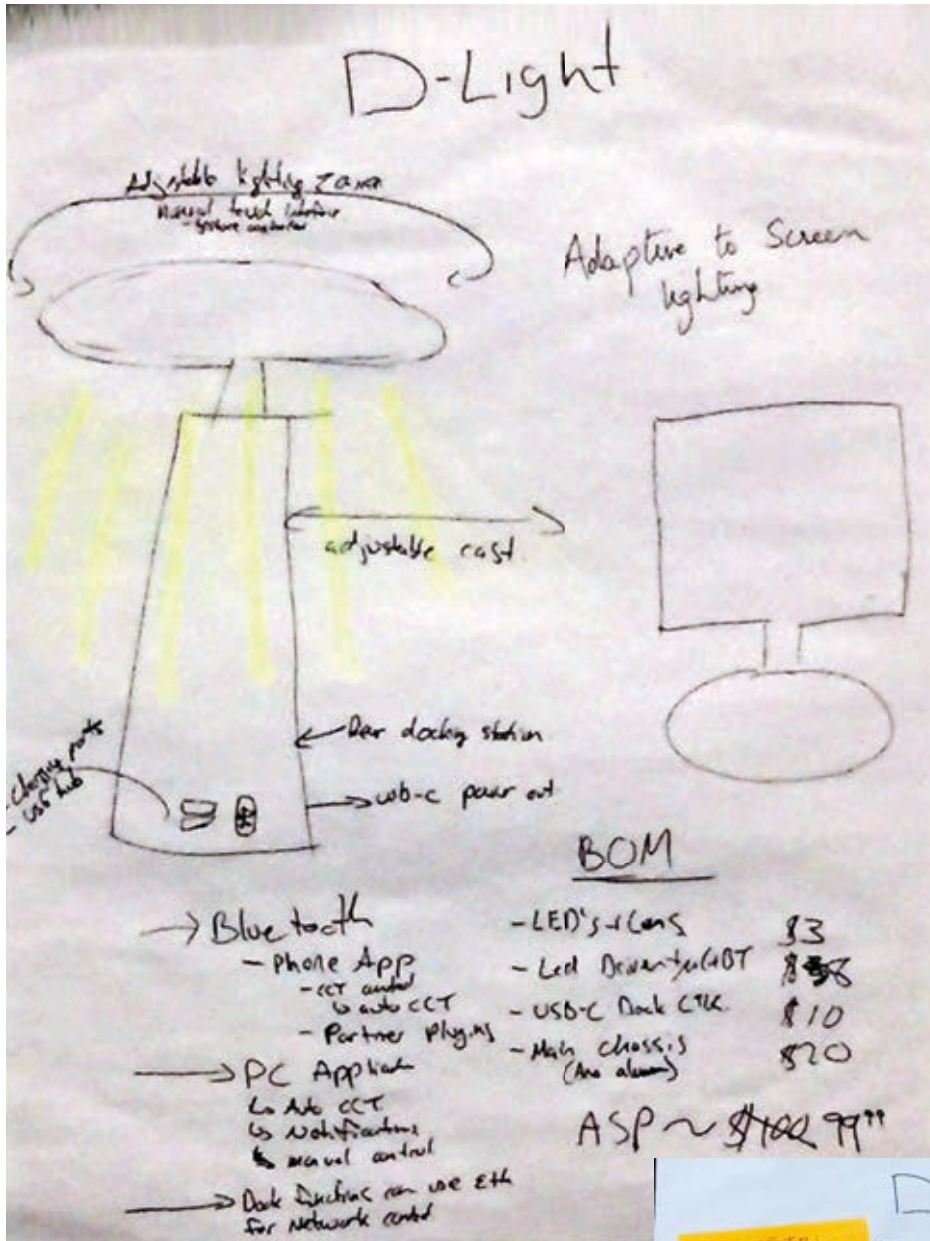 D-Light
Adjustable lighting zones
Manual touch interface
Adaptive to Screen
lighting
adjustable cast
Rear docking station
usb-c power out
- Charging ports
- USB hub
Bluetooth
- Phone App
- CCT control
auto CCT
- Partner Plugins
PC
Auto CCT
Notifications
manual control
Dock functions can use Eth
for Network control
BOM
- LED's + Lens $3
- Led Driver
- USB-C Dock $10
- Main Chassis $20
ASP ~ 99⁹⁹
D